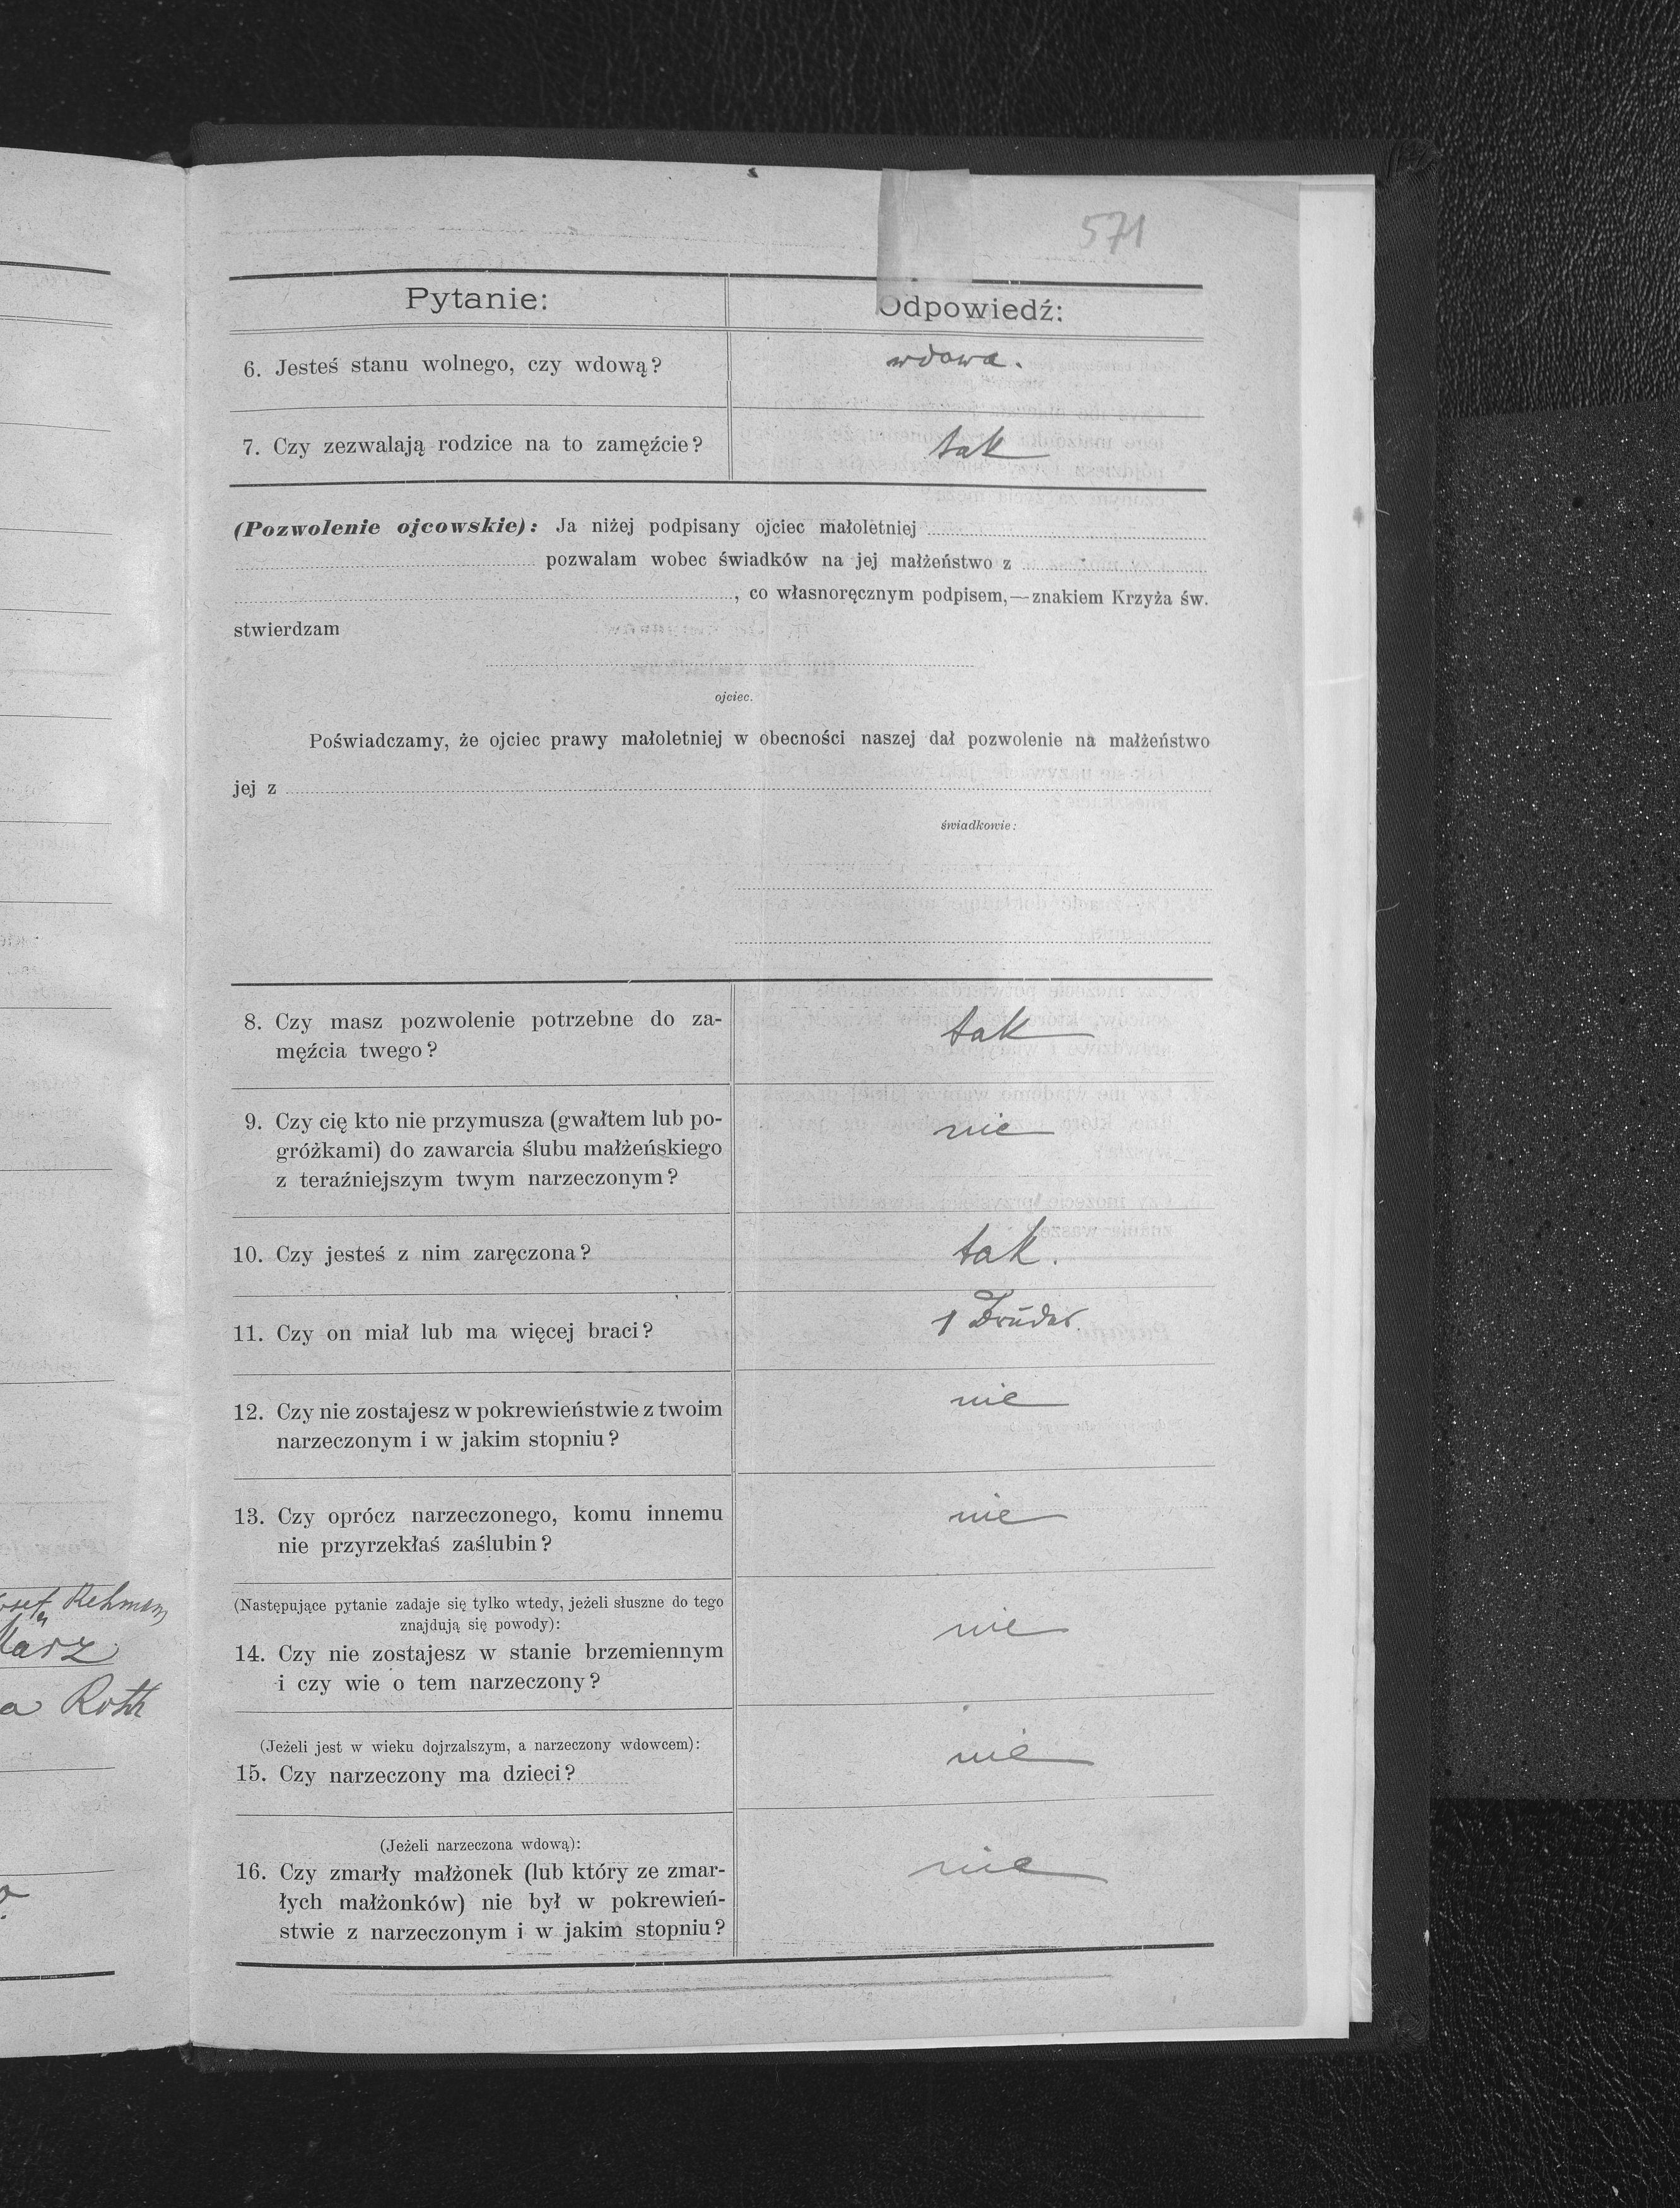 571
Pytanie:
Odpowiedź:
6. Jesteś stanu wolnego, czy wdową?
wdowa.
7. Czy zezwalają rodzice na to zamęźcie?
tak
(Pozwolenie ojcowskie): Ja niżej podpisany ojciec małoletniej
pozwalam wobec świadków na jej małżeństwo z
, co własnoręcznym podpisem,—znakiem Krzyża św.
stwierdzam
ojciec.
Poświadczamy, że ojciec prawy małoletniej w obecności naszej dał pozwolenie na małżeństwo
jej z
świadkowie:
8. Czy masz pozwolenie potrzebne do za-
męźcia twego?
tak
9. Czy cię kto nie przymusza (gwałtem lub po-
gróżkami) do zawarcia ślubu małżeńskiego
z teraźniejszym twym narzeczonym?
nie
10. Czy jesteś z nim zaręczona?
tak.
11. Czy on miał lub ma więcej braci?
1 Brúder.
12. Czy nie zostajesz w pokrewieństwie z twoim
narzeczonym i w jakim stopniu?
nie
13. Czy oprócz narzeczonego, komu innemu
nie przyrzekłaś zaślubin?
nie
(Następujące pytanie zadaje się tylko wtedy, jeżeli słuszne do tego
znajdują się powody):
14. Czy nie zostajesz w stanie brzemiennym
i czy wie o tem narzeczony?
nie
(Jeżeli jest w wieku dojrzalszym, a narzeczony wdowcem):
15. Czy narzeczony ma dzieci?
nie
(Jeżeli narzeczona wdową):
16. Czy zmarły małżonek (lub który ze zmar-
łych małżonków) nie był w pokrewień-
stwie z narzeczonym i w jakim stopniu?
nie
Roth